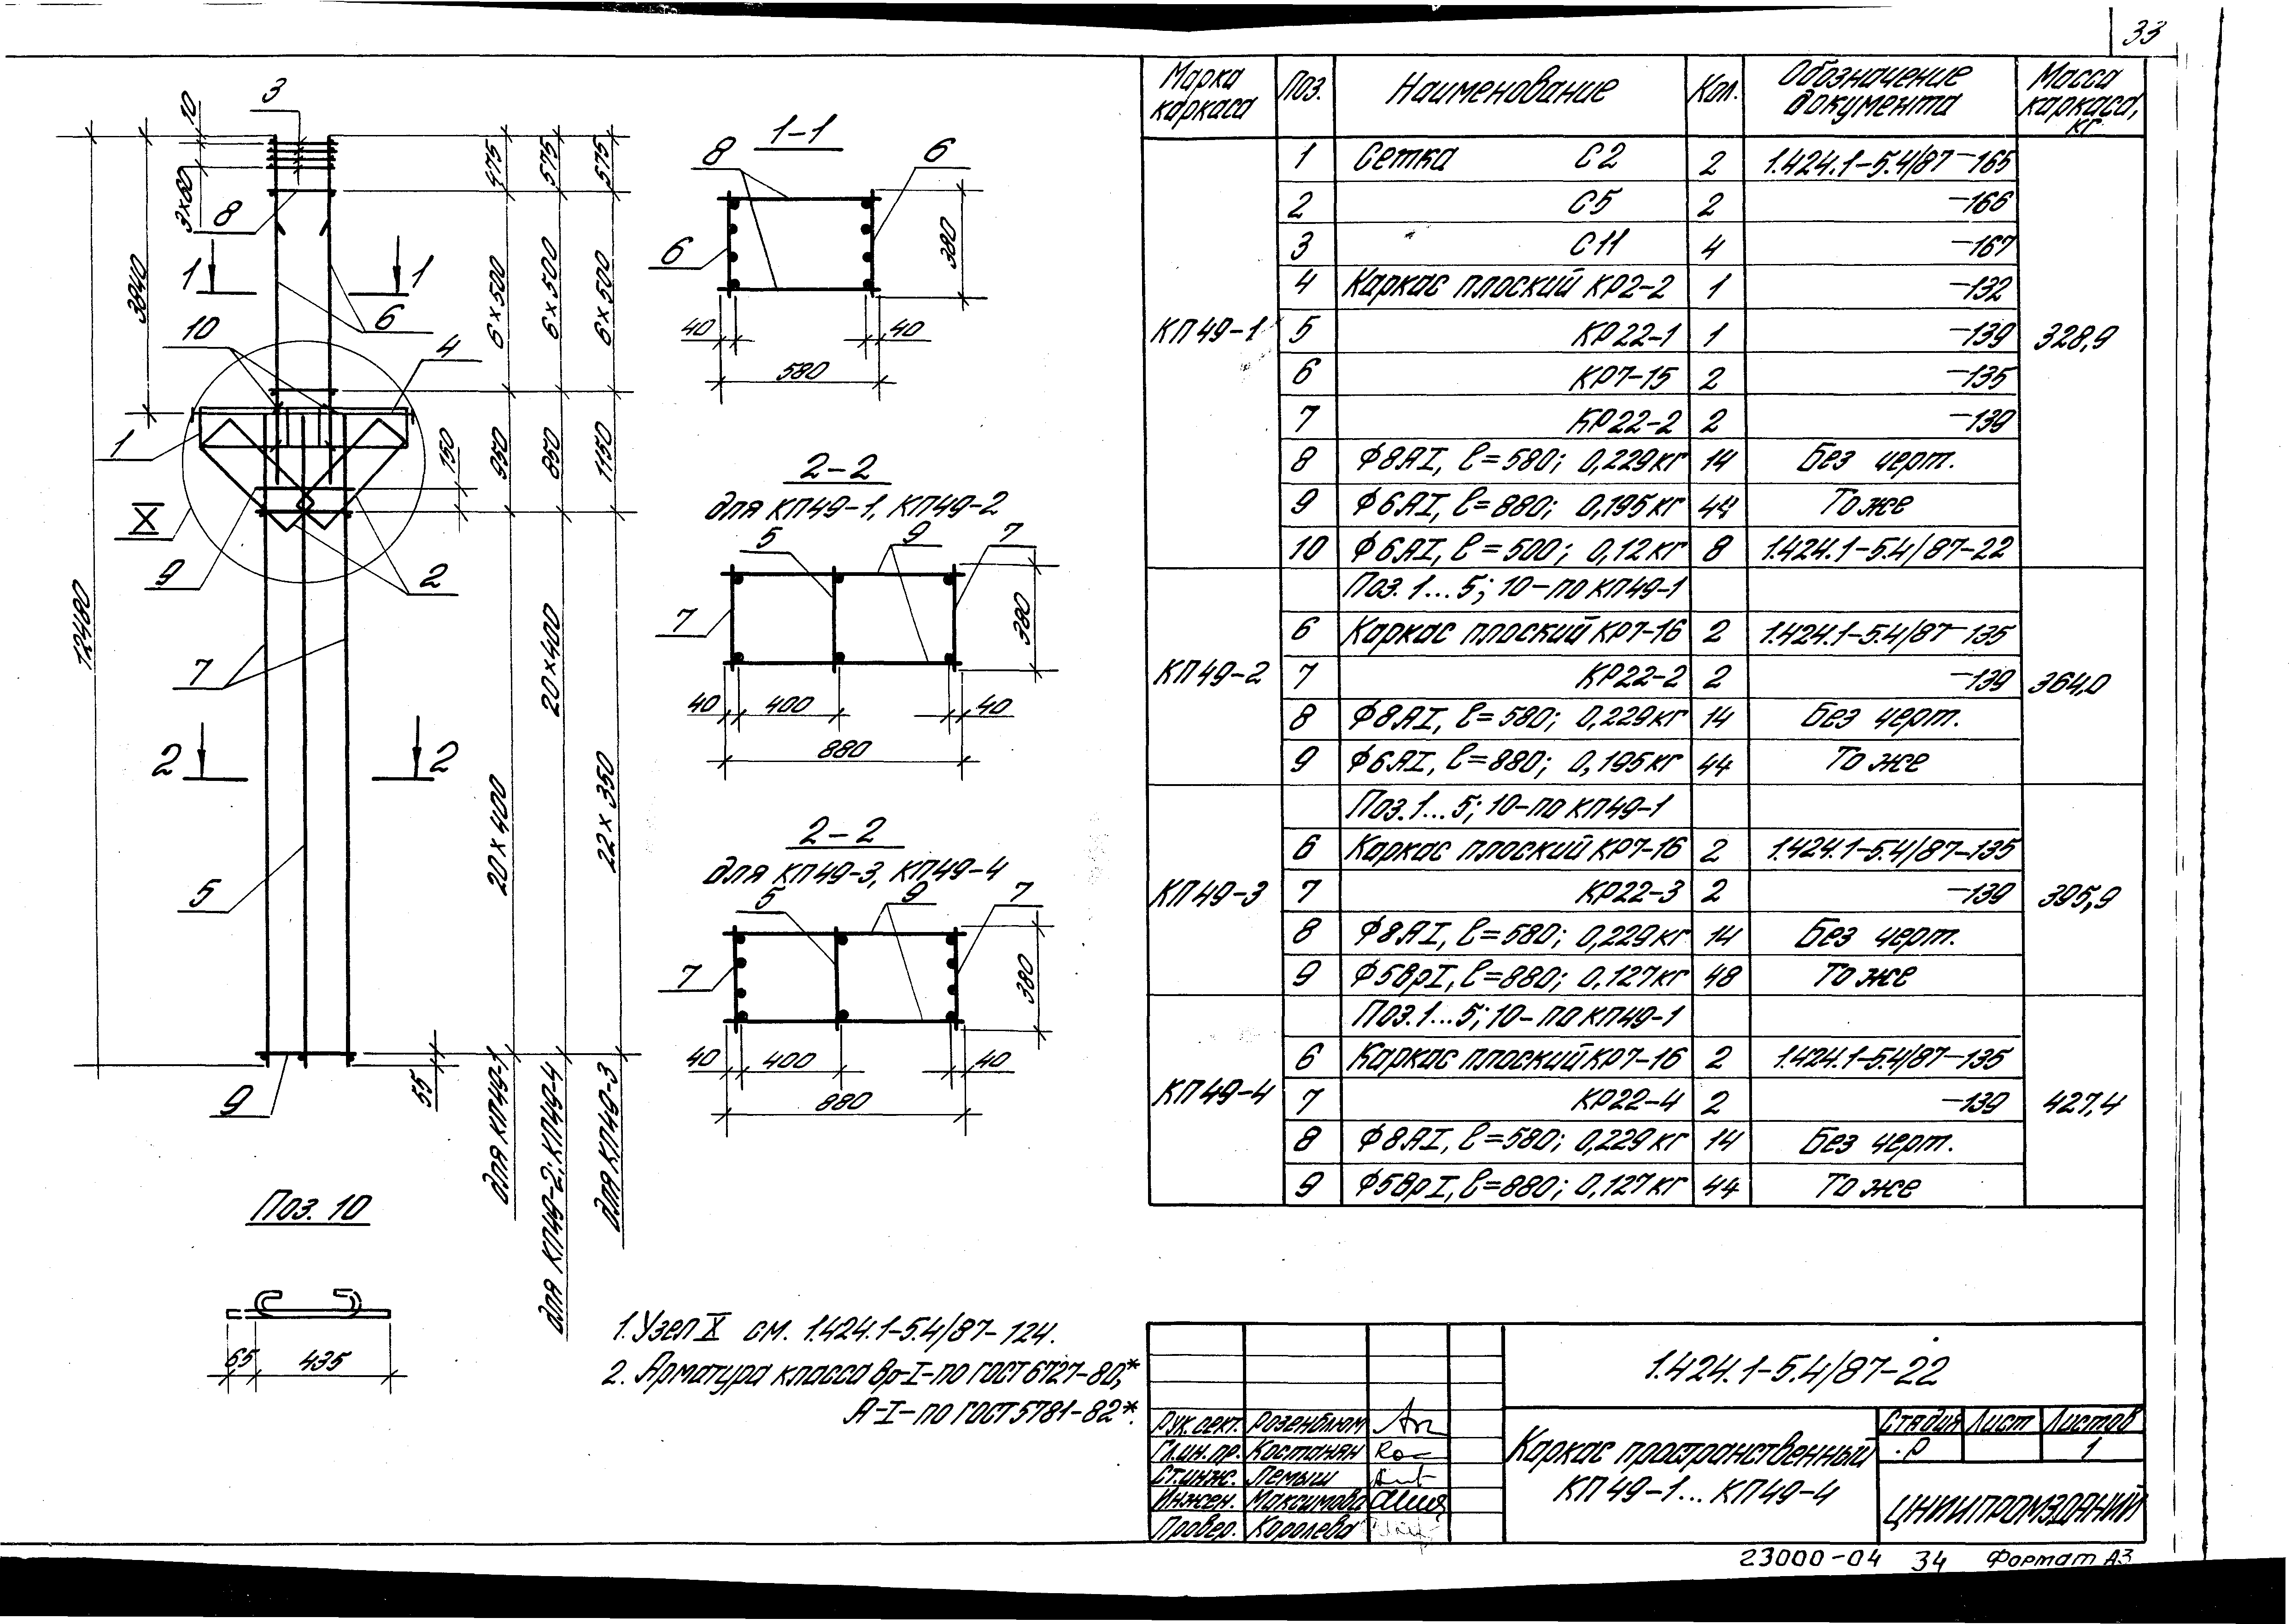 33
3
10
3×60
8
3840
12480
1 1
10
6
4
1
150
X
9
2
7
2 2
5
9
55
475
6×500
950
20×400
для КП49-1
575
6×500
850
20×400
для КП49-2; КП49-4
575
6×500
1150
22×350
для КП49-3
1-1
8 6
6
380
40 40
580
2-2
для КП49-1, КП49-2
5 9 7
7
380
40 400 40
880
2-2
для КП49-3, КП49-4
5 9 7
7
380
40 400 40
880
Поз. 10
65 435
1. Узел X см. 1.424.1-5.4/87-124.
2. Арматура класса Вр-I-по ГОСТ 6727-80*,
А-I-по ГОСТ 5781-82*.
Марка каркаса Поз. Наименование Кол. Обозначение документа Масса каркаса, кг
КП49-1 328,9
1 Сетка С2 2 1.424.1-5.4/87-165
2 С5 2 -166
3 С11 4 -167
4 Каркас плоский КР2-2 1 -132
5 КР22-1 1 -139
6 КР7-15 2 -135
7 КР22-2 2 -139
8 Ф8АI, ℓ=580; 0,229кг 14 Без черт.
9 Ф6АI, ℓ=880; 0,195кг 44 То же
10 Ф6АI, ℓ=500; 0,12кг 8 1.424.1-5.4/87-22
КП49-2 364,0
Поз. 1...5; 10-по КП49-1
6 Каркас плоский КР7-16 2 1.424.1-5.4/87-135
7 КР22-2 2 -139
8 Ф8АI, ℓ=580; 0,229кг 14 Без черт.
9 Ф6АI, ℓ=880; 0,195кг 44 То же
КП49-3 395,9
Поз. 1...5; 10-по КП49-1
6 Каркас плоский КР7-16 2 1.424.1-5.4/87-135
7 КР22-3 2 -139
8 Ф8АI, ℓ=580; 0,229кг 14 Без черт.
9 Ф5ВрI, ℓ=880; 0,127кг 48 То же
КП49-4 427,4
Поз. 1...5; 10-по КП49-1
6 Каркас плоский КР7-16 2 1.424.1-5.4/87-135
7 КР22-4 2 -139
8 Ф8АI, ℓ=580; 0,229кг 14 Без черт.
9 Ф5ВрI, ℓ=880; 0,127кг 44 То же
1.424.1-5.4/87-22
Рук. сект. Розенблюм
Гл.ин.пр. Костанян
Ст.инж. Лемыш
Инжен. Максимова
Провер. Королева
Каркас пространственный
КП49-1...КП49-4
Стадия Лист Листов
Р 1
ЦНИИПРОМЗДАНИЙ
23000-04 34 Формат А3